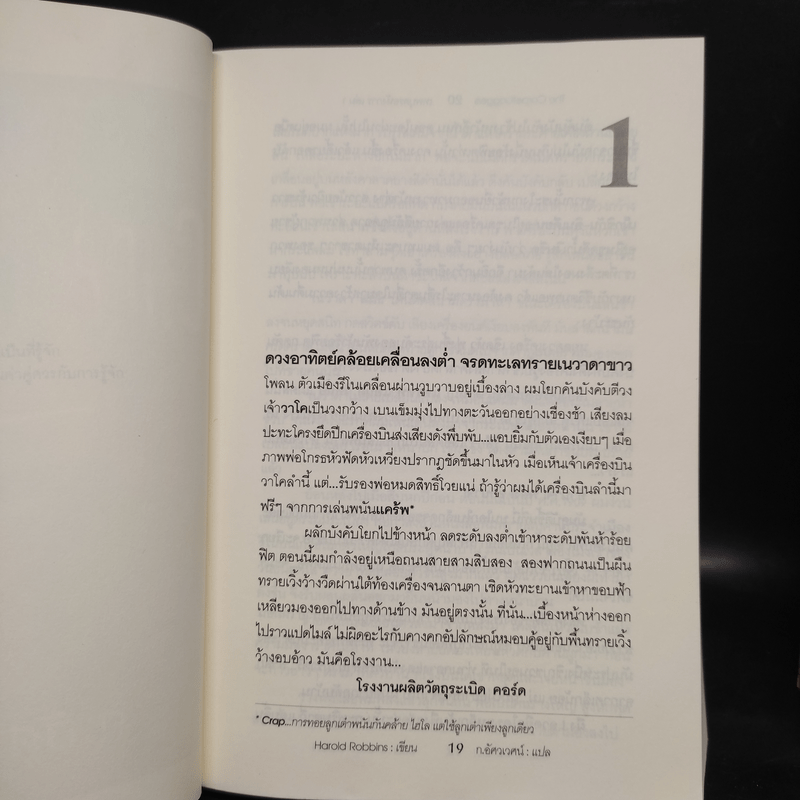 1
ดวงอาทิตย์คล้อยเคลื่อนลงต่ำ จรดทะเลทรายเนวาดาขาว
โพลน ตัวเมืองรีโนเคลื่อนผ่านวูบวาบอยู่เบื้องล่าง ผมโยกคันบังคับตีวง
เจ้าวาโคเป็นวงกว้าง เบนเข็มมุ่งไปทางตะวันออกอย่างเชื่องช้า เสียงลม
ปะทะโครงยึดปีกเครื่องบินส่งเสียงดังพึ่บพับ...แอบยิ้มกับตัวเองเงียบๆ เมื่อ
ภาพพ่อโกรธหัวฟัดหัวเหวี่ยงปรากฏชัดขึ้นมาในหัว เมื่อเห็นเจ้าเครื่องบิน
วาโคลำนี้ แต่...รับรองพ่อหมดสิทธิ์โวยแน่ ถ้ารู้ว่าผมได้เครื่องบินลำนี้มา
ฟรีๆ จากการเล่นพนันแคร้พ*
ผลักบังคับโยกไปข้างหน้า ลดระดับลงต่ำเข้าหาระดับพันห้าร้อย
ฟิต ตอนนี้ผมกำลังอยู่เหนือถนนสายสามสิบสอง สองฟากถนนเป็นผืน
ทรายเวิ้งว้างวืดผ่านใต้ท้องเครื่องจนลานตา เชิดหัวทะยานเข้าหาขอบฟ้า
เหลียวมองออกไปทางด้านข้าง มันอยู่ตรงนั้น ที่นั่น...เบื้องหน้าห่างออก
ไปราวแปดไมล์ ไม่ผิดอะไรกับคางคกอัปลักษณ์หมอบคู้อยู่กับพื้นทรายเวิ้ง
ว้างอบอ้าว มันคือโรงงาน...
โรงงานผลิตวัตถุระเบิด คอร์ด
* Crap...การทอยลูกเต๋าพนันกันคล้าย ไฮโล แต่ใช้ลูกเต๋าเพียงลูกเดียว
Harold Robbins : เขียน 19 ก.อัศวเวศน์ : แปล